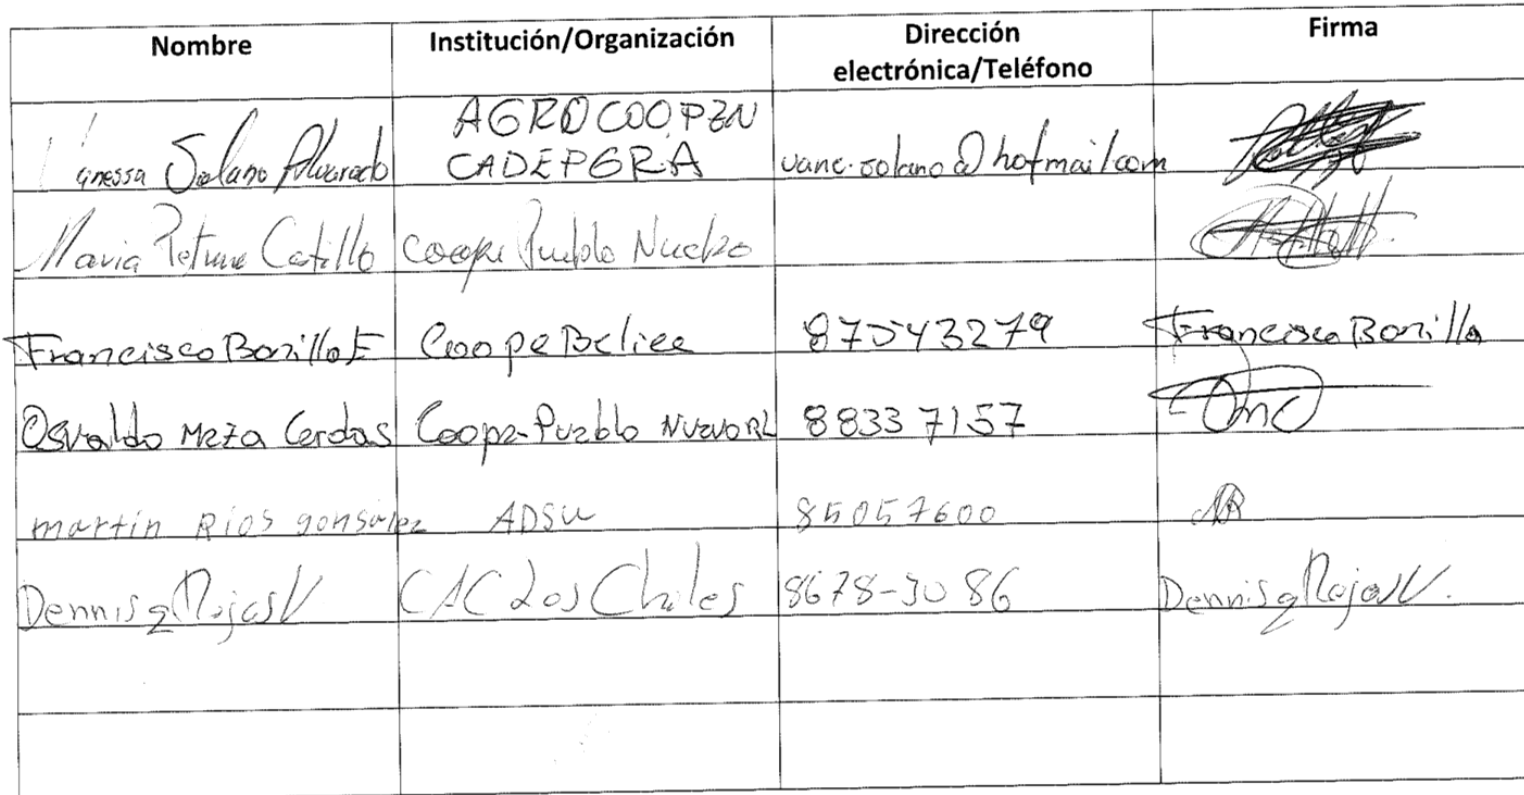 Nombre Institución/Organización Dirección electrónica/Teléfono Firma
Vanessa Solano Alvarado AGROCOOPEN CADEPGRA vanc.solano@hotmail.com
Maria Castillo Coope Pueblo Nuevo
Francisco Bonilla E Coope Belice 87043279 Francisco Bonilla
Osvaldo Meza Cerdas Coope-Pueblo Nuevo RL 88337157
martin Rios gonsalez ADSU 85057600 MR
Dennis g Rojas V CAC Los Chiles 8678-3086 Dennis g Rojas V.